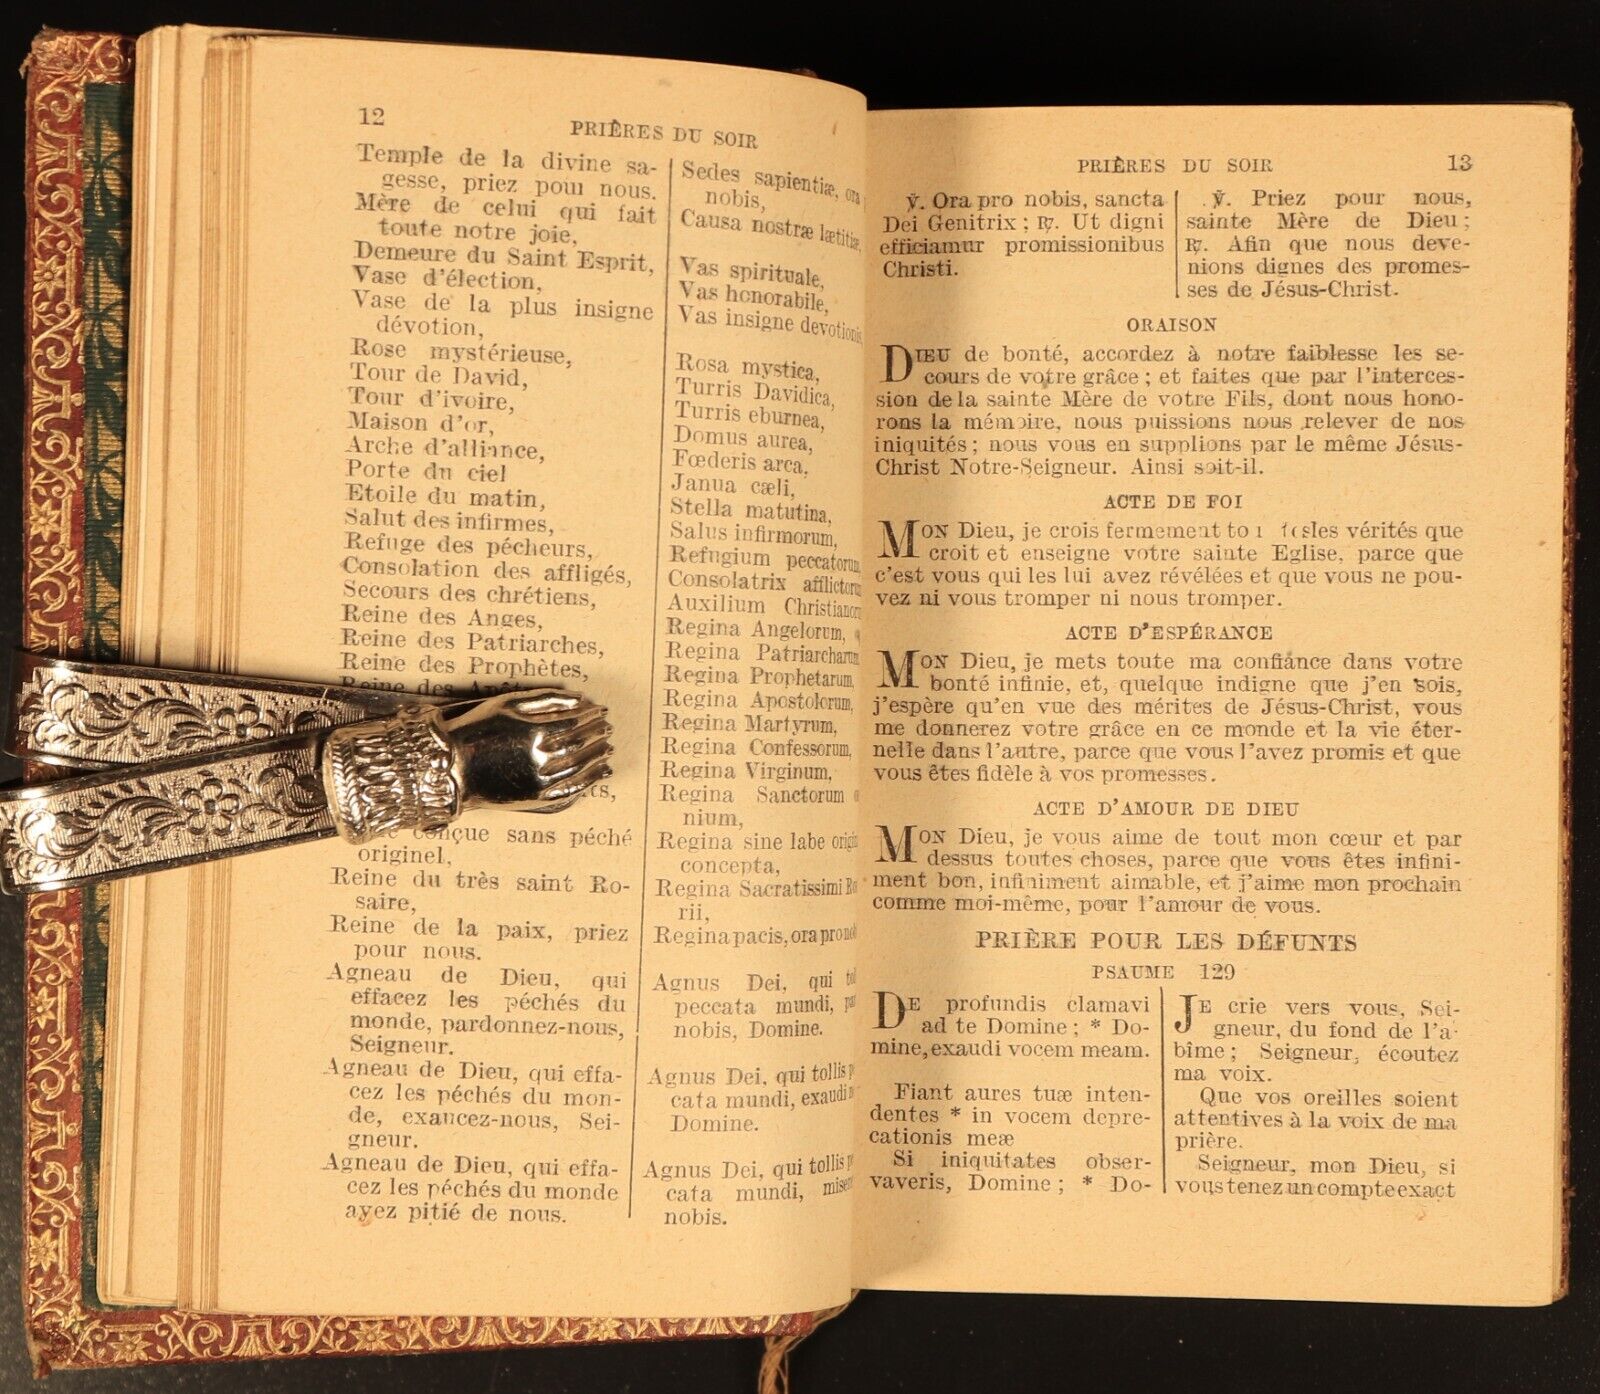 12
PRIÈRES DU SOIR
Temple de la divine sa-
gesse, priez pour nous.
Mère de celui qui fait
toute notre joie,
Demeure du Saint Esprit,
Vase d'élection,
Vase de la plus insigne
dévotion,
Rose mystérieuse,
Tour de David,
Tour d'ivoire,
Maison d'or,
Arche d'alliance,
Porte du ciel
Etoile du matin,
Salut des infirmes,
Refuge des pécheurs,
Consolation des affligés,
Secours des chrétiens,
Reine des Anges,
Reine des Patriarches,
Reine des Prophètes,
Reine des
conçue sans péché
originel,
Reine du très saint Ro-
saire,
Reine de la paix, priez
pour nous.
Agneau de Dieu, qui
effacez les péchés du
monde, pardonnez-nous,
Seigneur.
Agneau de Dieu, qui effa-
cez les péchés du mon-
de, exaucez-nous, Sei-
gneur.
Agneau de Dieu, qui effa-
cez les péchés du monde
ayez pitié de nous.
Sedes sapientiæ, ora
nobis,
Causa nostræ lætitiæ,
Vas spirituale,
Vas honorabile,
Vas insigne devotionis,
Rosa mystica,
Turris Davidica,
Turris eburnea,
Domus aurea,
Fœderis arca,
Janua cæli,
Stella matutina,
Salus infirmorum,
Refugium peccatorum,
Consolatrix afflictoru
Auxilium Christianor
Regina Angelorum,
Regina Patriarcharum
Regina Prophetarum,
Regina Apostolorum,
Regina Martyrum,
Regina Confessorum,
Regina Virginum,
Regina Sanctorum
nium,
Regina sine labe origin
concepta,
Regina Sacratissimi
rii,
Regina pacis, ora pro nob
Agnus Dei, qui tol
peccata mundi, par
nobis, Domine.
Agnus Dei, qui tollis p
cata mundi, exaudi n
Domine.
Agnus Dei, qui tollis p
cata mundi, miser
nobis.
PRIÈRES DU SOIR
13
℣. Ora pro nobis, sancta
Dei Genitrix ; ℟. Ut digni
efficiamur promissionibus
Christi.
℣. Priez pour nous,
sainte Mère de Dieu ;
℟. Afin que nous deve-
nions dignes des promes-
ses de Jésus-Christ.
ORAISON
DIEU de bonté, accordez à notre faiblesse les se-
cours de votre grâce ; et faites que par l'interces-
sion de la sainte Mère de votre Fils, dont nous hono-
rons la mémoire, nous puissions nous relever de nos
iniquités ; nous vous en supplions par le même Jésus-
Christ Notre-Seigneur. Ainsi soit-il.
ACTE DE FOI
MON Dieu, je crois fermement to les vérités que
croit et enseigne votre sainte Eglise, parce que
c'est vous qui les lui avez révélées et que vous ne pou-
vez ni vous tromper ni nous tromper.
ACTE D'ESPÉRANCE
MON Dieu, je mets toute ma confiance dans votre
bonté infinie, et, quelque indigne que j'en sois,
j'espère qu'en vue des mérites de Jésus-Christ, vous
me donnerez votre grâce en ce monde et la vie éter-
nelle dans l'autre, parce que vous l'avez promis et que
vous êtes fidèle à vos promesses.
ACTE D'AMOUR DE DIEU
MON Dieu, je vous aime de tout mon cœur et par
dessus toutes choses, parce que vous êtes infini-
ment bon, infiniment aimable, et j'aime mon prochain
comme moi-même, pour l'amour de vous.
PRIÈRE POUR LES DÉFUNTS
PSAUME 129
DE profundis clamavi
ad te Domine ; * Do-
mine, exaudi vocem meam.
Fiant aures tuæ inten-
dentes * in vocem depre-
cationis meæ
Si iniquitates obser-
vaveris, Domine ; * Do-
JE crie vers vous, Sei-
gneur, du fond de l'a-
bîme ; Seigneur, écoutez
ma voix.
Que vos oreilles soient
attentives à la voix de ma
prière.
Seigneur, mon Dieu, si
vous tenez un compte exact